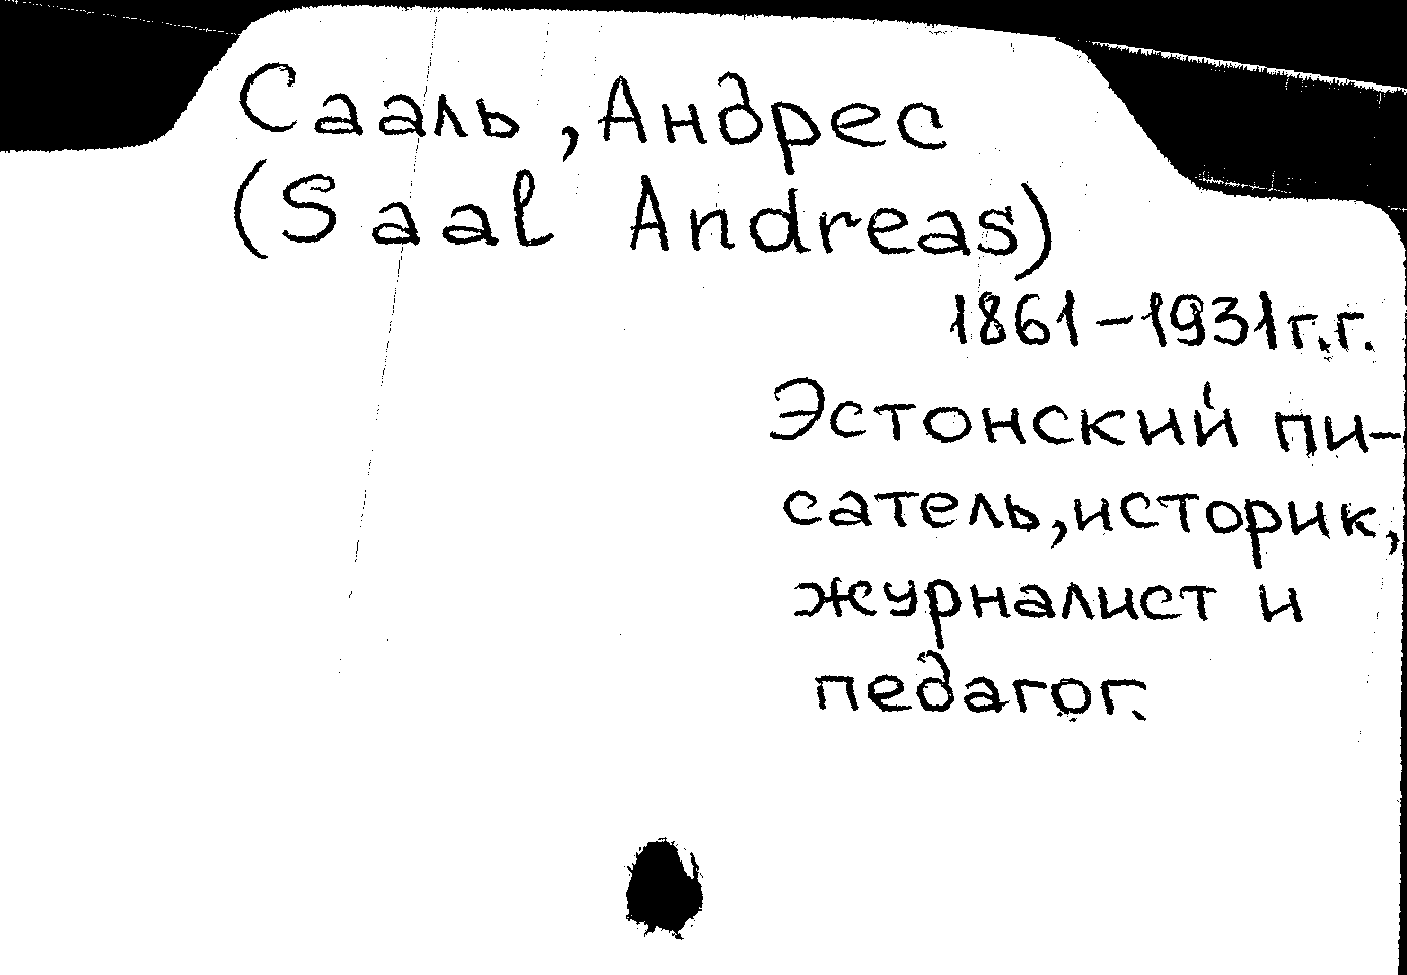 Сааль, Андрес
(Saal Andreas)
1861-1931г.г.
Эстонский пи-
сатель, историк,
журналист и
педагог.